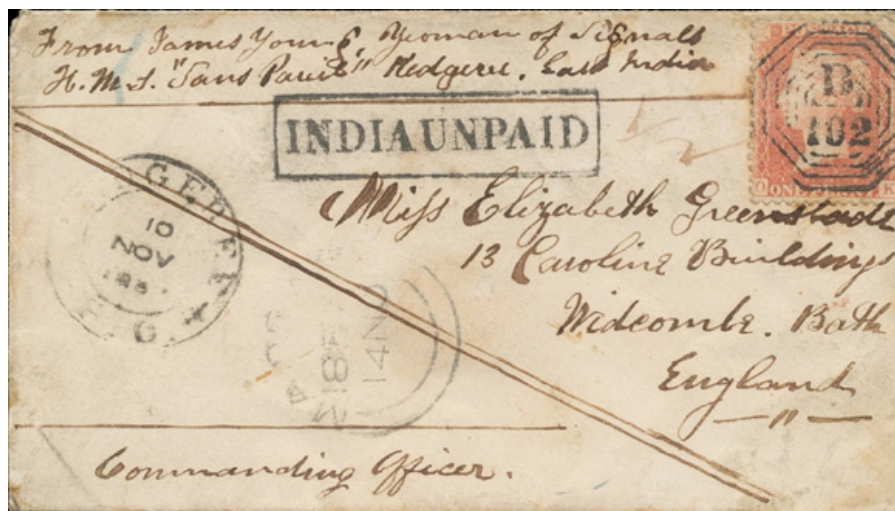 From James Young Yeoman of Signals
H.M.S. "Sans Pareil" Kedgeree. East India
INDIA UNPAID
B
102
ONE
GEREE
10
NOV
185
P.O.
Miss Elizabeth Greenslade
13 Caroline Buildings
Widcombe. Bath
England
M
18
14 NO
Commanding Officer.